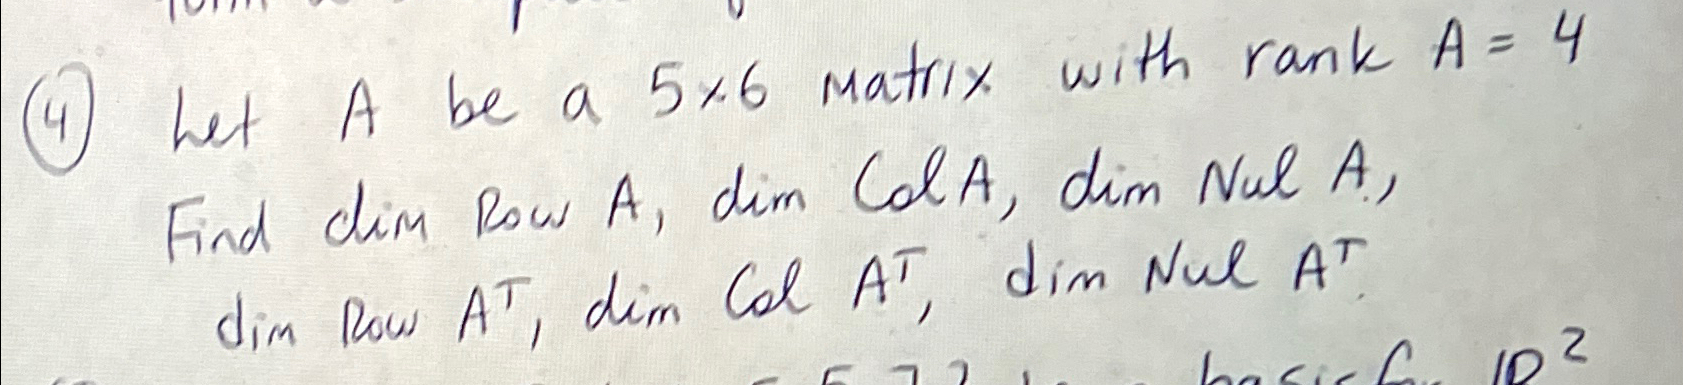 ④ Let A be a 5×6 Matrix with rank A = 4
Find dim Row A, dim Col A, dim Nul A,
dim Row Aᵀ, dim Col Aᵀ, dim Nul Aᵀ.